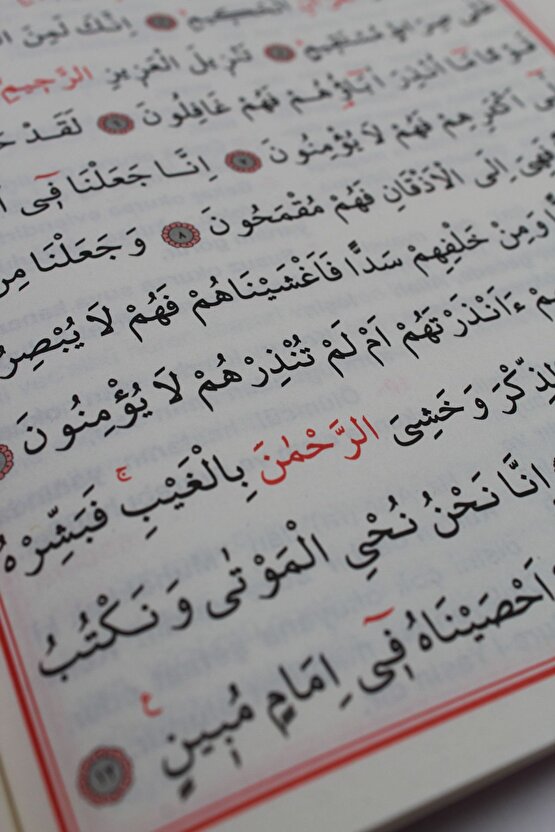 الْحَكِيمِ ﴿٢﴾ اِنَّكَ لَمِنَ
عَلٰى صِرَاطٍ مُسْتَقِيمٍ ﴿٤﴾ تَنْزِيلَ الْعَزِيزِ الرَّحِيمِ
قَوْمًا مَٓا اُنْذِرَ اٰبَٓاؤُ۬هُمْ فَهُمْ غَافِلُونَ ﴿٦﴾ لَقَدْ
اَكْثَرِهِمْ فَهُمْ لَا يُؤْمِنُونَ ﴿٧﴾ اِنَّا جَعَلْنَا فِٓى
فَهِىَ اِلَى الْاَذْقَانِ فَهُمْ مُقْمَحُونَ ﴿٨﴾ وَجَعَلْنَا مِنْ
وَمِنْ خَلْفِهِمْ سَدًّا فَاَغْشَيْنَاهُمْ فَهُمْ لَا يُبْصِرُ
ءَاَنْذَرْتَهُمْ اَمْ لَمْ تُنْذِرْهُمْ لَا يُؤْمِنُونَ
الذِّكْرَ وَخَشِىَ الرَّحْمٰنَ بِالْغَيْبِۚ فَبَشِّرْهُ
اِنَّا نَحْنُ نُحْيِ الْمَوْتٰى وَنَكْتُبُ
اَحْصَيْنَاهُ فِٓى اِمَامٍ مُبٖينٍ ع ﴿١٢﴾